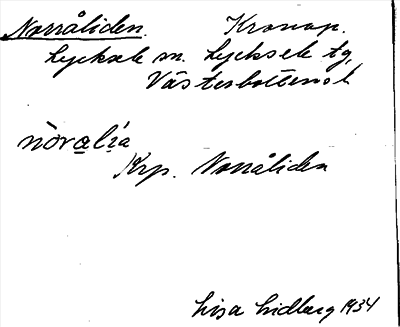 Norråliden. Kronop.
Lycksele sn. Lycksele tg,
Västerbottens l
nòra̲li̲a
Krp. Norråliden
Lisa Lidberg 1934